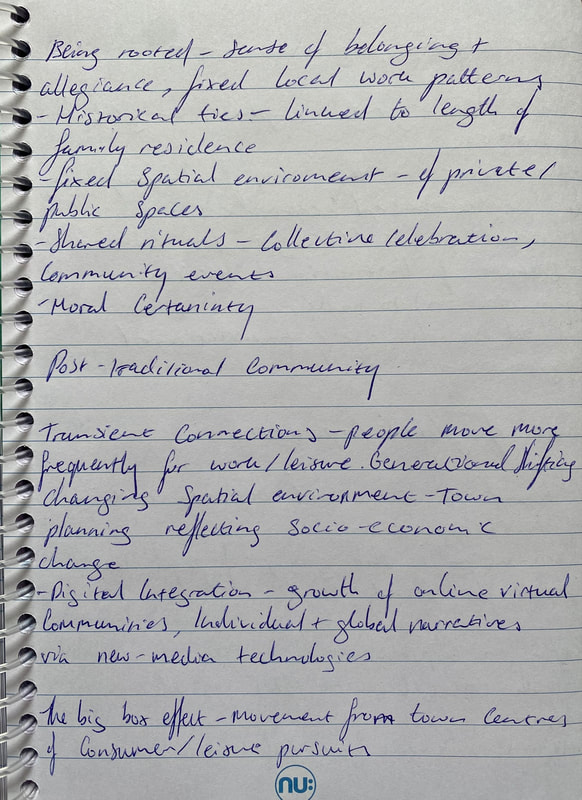 Being rooted - sense of belonging +
allegiance, fixed local work patterns
- Historical ties - linked to length of
family residence
- fixed spatial enviroment - of private/
public spaces
- Shared rituals - collective celebration,
community events
- Moral Certaninty
Post-traditional Community
Transient Connections - people move more
frequently for work/leisure. Generational shifting
changing spatial environment - Town
planning reflecting socio-economic
change
- Digital Integration - growth of online virtual
communities, individual + global narratives
via new-media technologies
The big box effect - movement from town centres
of consumer/leisure pursuits
nu: